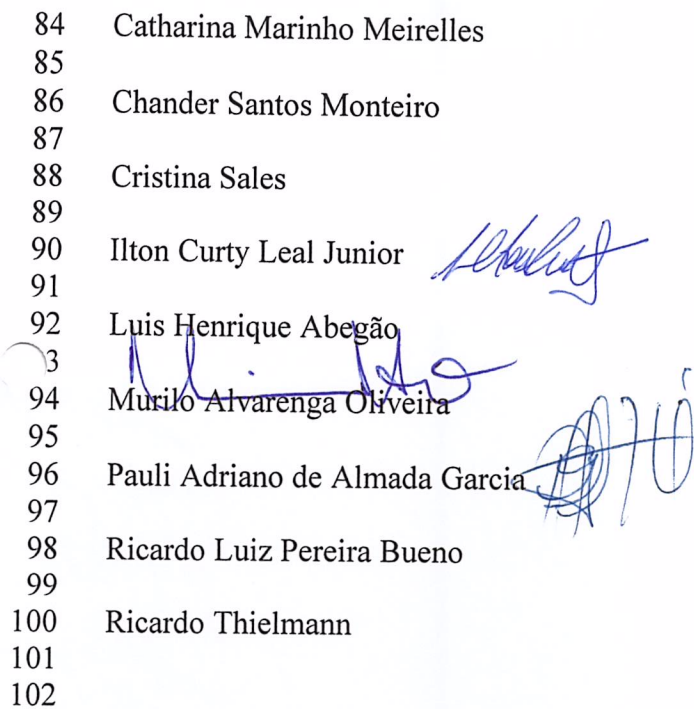 84 Catharina Marinho Meirelles
85
86 Chander Santos Monteiro
87
88 Cristina Sales
89
90 Ilton Curty Leal Junior
91
92 Luis Henrique Abegão
3
94 Murilo Alvarenga Oliveira
95
96 Pauli Adriano de Almada Garcia
97
98 Ricardo Luiz Pereira Bueno
99
100 Ricardo Thielmann
101
102